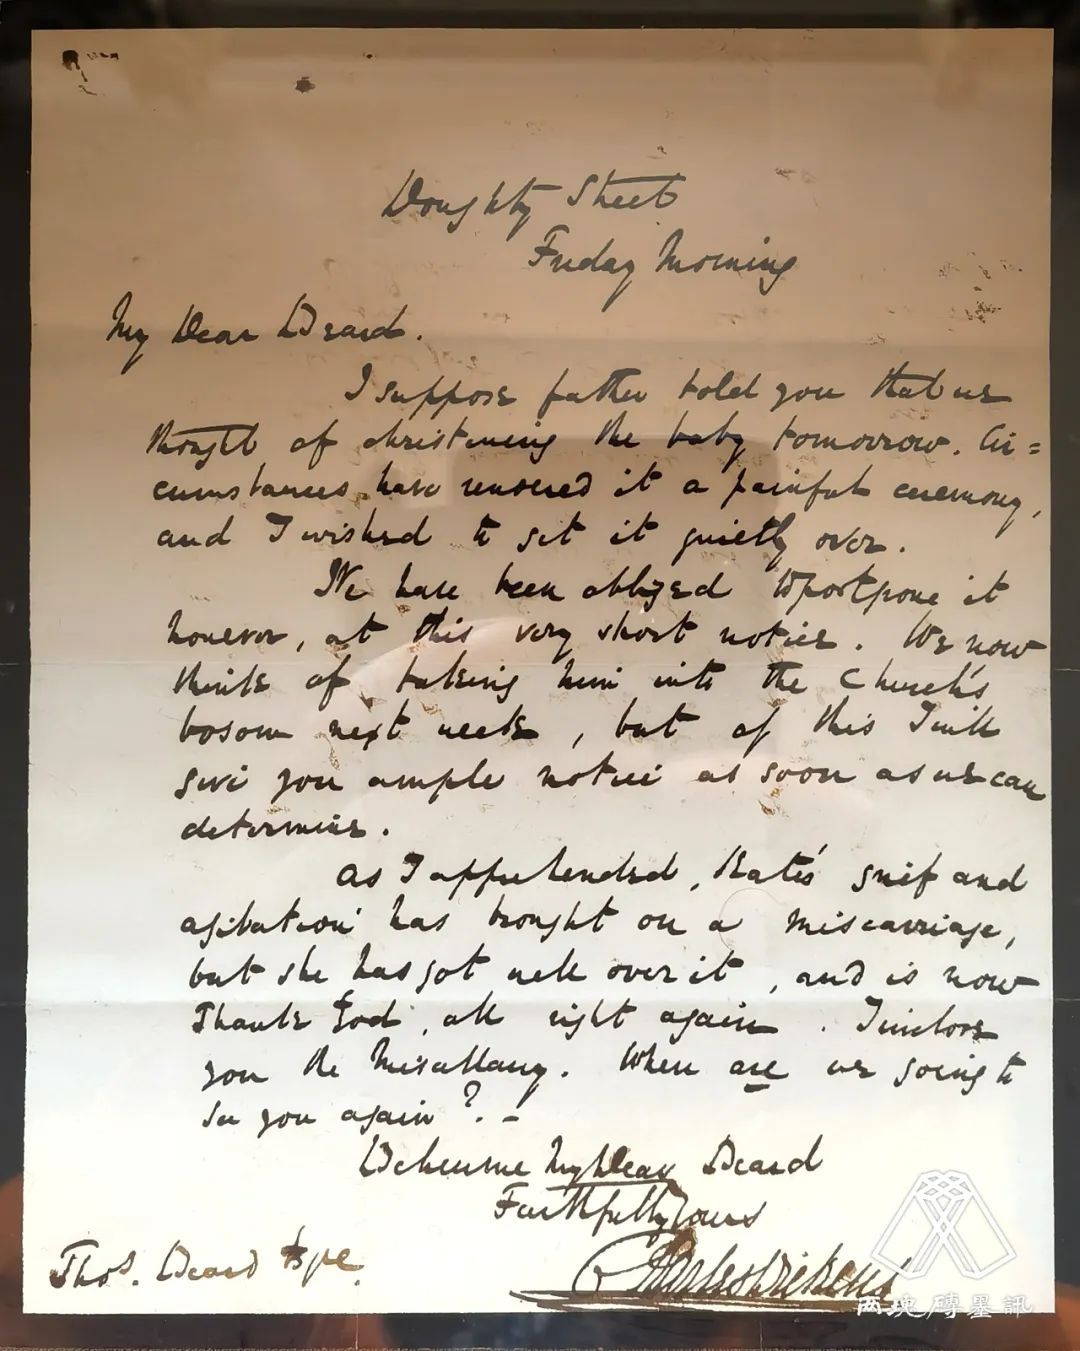 Doughty Street
Friday Morning
My Dear Beard.
I suppose father told you that we
thought of christening the baby tomorrow. Cir=
cumstances have rendered it a painful ceremony,
and I wished to get it quietly over.
We have been obliged to postpone it
however, at this very short notice. We now
think of taking him into the Church's
bosom next week, but of this I will
give you ample notice as soon as we can
determine.
As I apprehended, Kate's grief and
agitation has brought on a miscarriage,
but she has got well over it, and is now
Thank God, all right again. I inclose
you the Miscellany. When are we going to
see you again? -
Believe me My Dear Beard
Faithfully Yours
Charles Dickens
Thos. Beard Esqre.
两塊磚墨訊